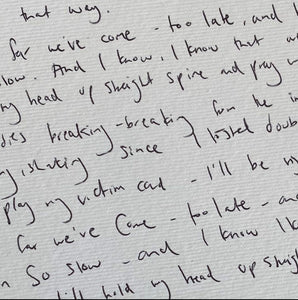 that way.
far we've come - too late, and I
low. And I know, I know that
my head up straight spine and pray
dies breaking - breaking from the in
shaking since I
play my victim card - I'll be my
far we've come - too late - an
n so slow - and I know I k
hold my head up straigh